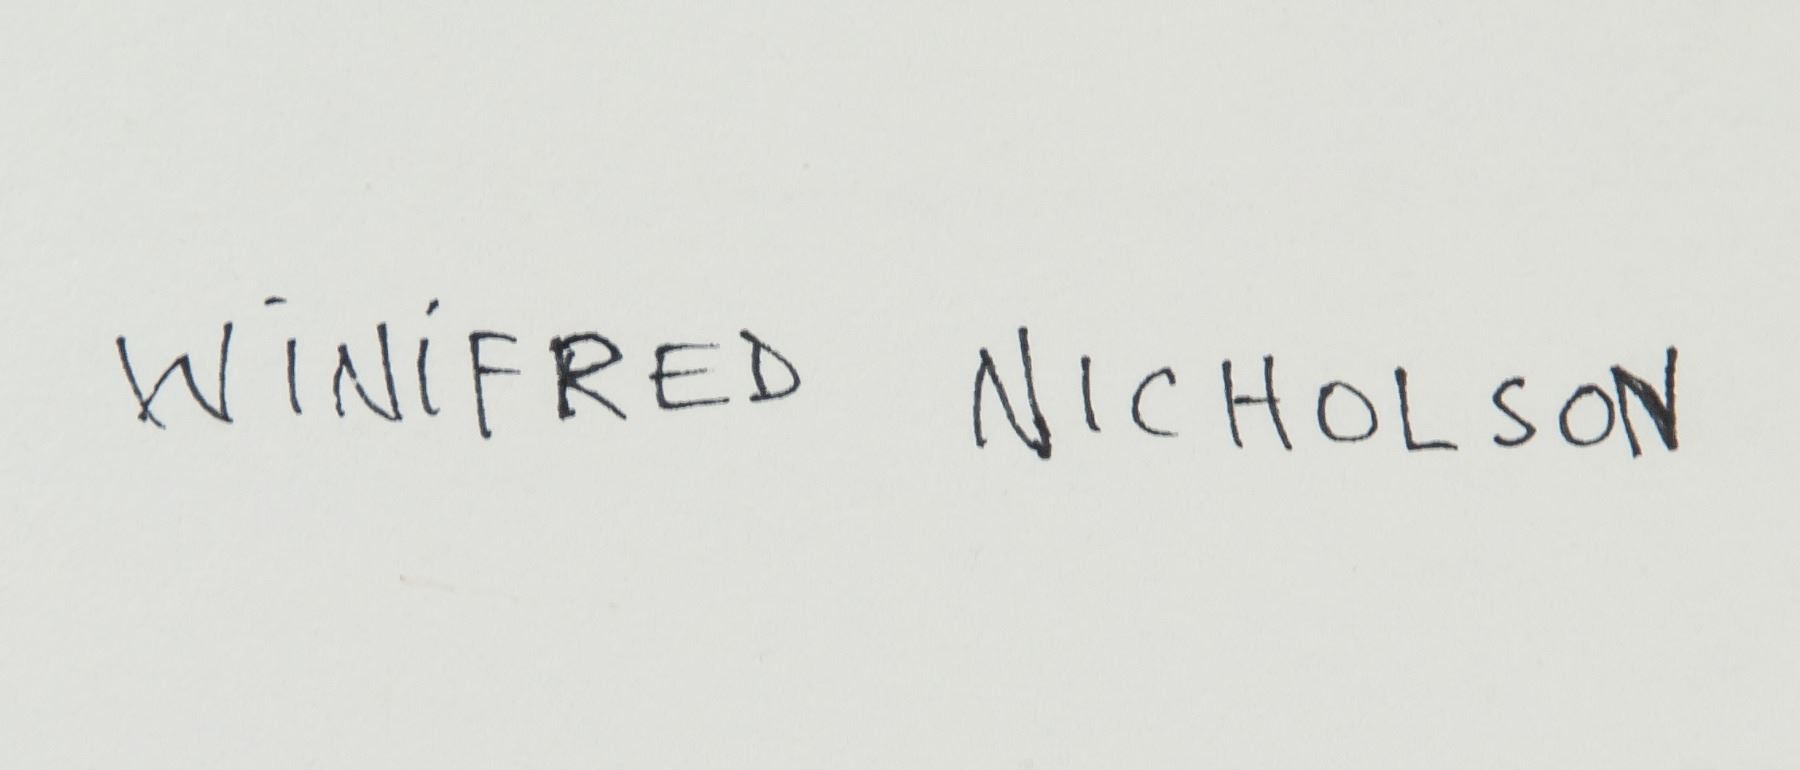 WINIFRED NICHOLSON